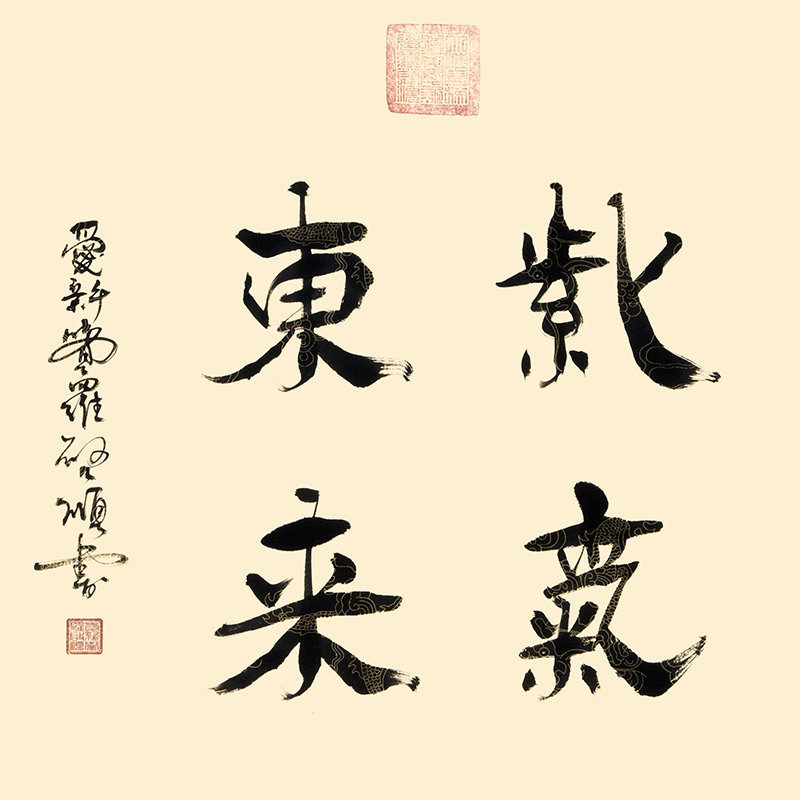 紫氣
東来
愛新覺羅啓順書